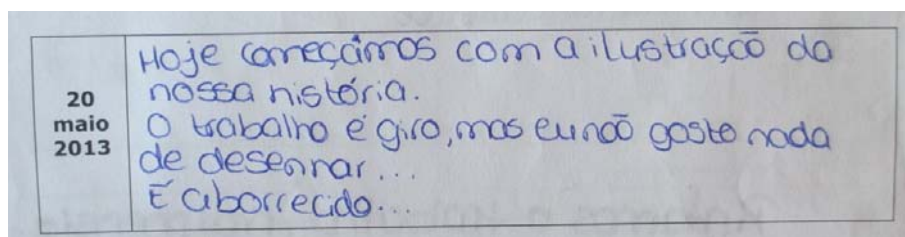 20
maio
2013
Hoje começámos com a ilustração da
nossa história.
O trabalho é giro, mas eu não gosto nada
de desenhar...
É aborrecido...